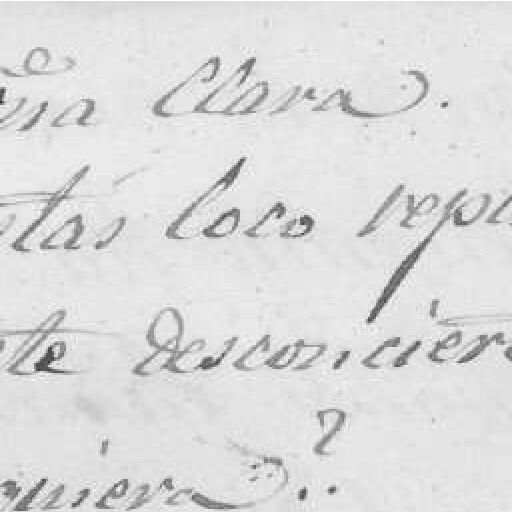 ña Clara.
stás loco repu
te desconcier
quiera?